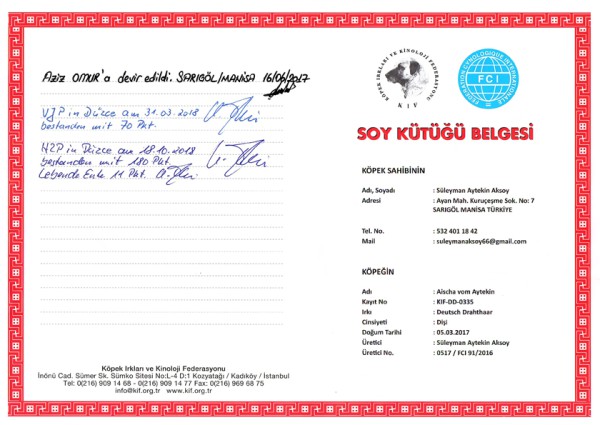 Aziz OMUR'a devir edildi. SARIGÖL/MANİSA 16/06/2017
VJP in Düzce am 31.03.2018
bestanden mit 70 Pkt.
HZP in Düzce am 18.10.2018
bestanden mit 180 Pkt.
Lebende Ente 11 Pkt.
Köpek Irkları ve Kinoloji Federasyonu
İnönü Cad. Sümer Sk. Sümko Sitesi No:L-4 D:1 Kozyatağı / Kadıköy / İstanbul
Tel: 0(216) 909 14 68 - 0(216) 909 14 77 Fax: 0(216) 969 68 75
info@kif.org.tr www.kif.org.tr
KÖPEK IRKLARI VE KİNOLOJİ FEDERASYONU
KIF
FEDERATION CYNOLOGIQUE INTERNATIONALE
FCI
SOY KÜTÜĞÜ BELGESİ
KÖPEK SAHİBİNİN
Adı, Soyadı : Süleyman Aytekin Aksoy
Adresi : Ayan Mah. Kuruçeşme Sok. No: 7
SARIGÖL MANİSA TÜRKİYE
Tel. No. : 532 401 18 42
Mail : suleymanaksoy66@gmail.com
KÖPEĞİN
Adı : Aischa vom Aytekin
Kayıt No : KIF-DD-0335
Irkı : Deutsch Drahthaar
Cinsiyeti : Dişi
Doğum Tarihi : 05.03.2017
Üretici : Süleyman Aytekin Aksoy
Üretici No. : 0517 / FCI 91/2016